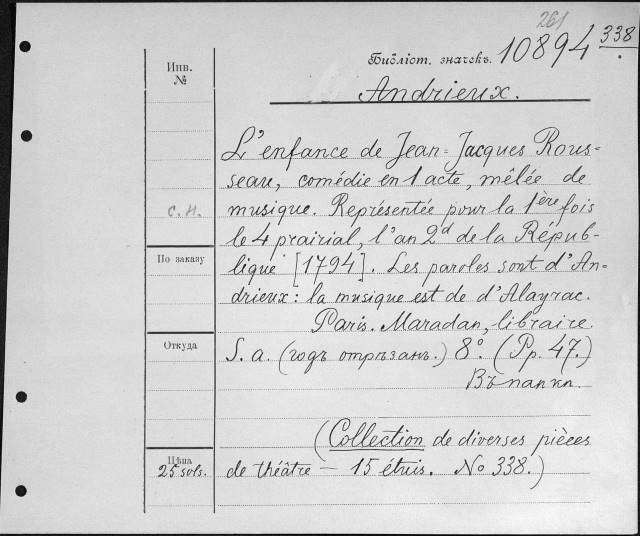 261
Библіот. значекъ. 10894 338
Инв.
№
Andrieux.
L'enfance de Jean=Jacques Rous-
seau, comédie en 1 acte, mêlée de
с. н.
musique. Représentée pour la 1ère fois
le 4 prairial, l'an 2d de la Répub-
По заказу
lique [1794]. Les paroles sont d'An-
drieux: la musique est de d'Alayrac.
Paris. Maradan, libraire.
Откуда
S. a. (годъ отрѣзанъ.) 8°. (Pp. 47.)
Въ папкѣ.
(Collection de diverses pièces
Цѣна
25 sols.
de théâtre — 15 étuis. No 338.)